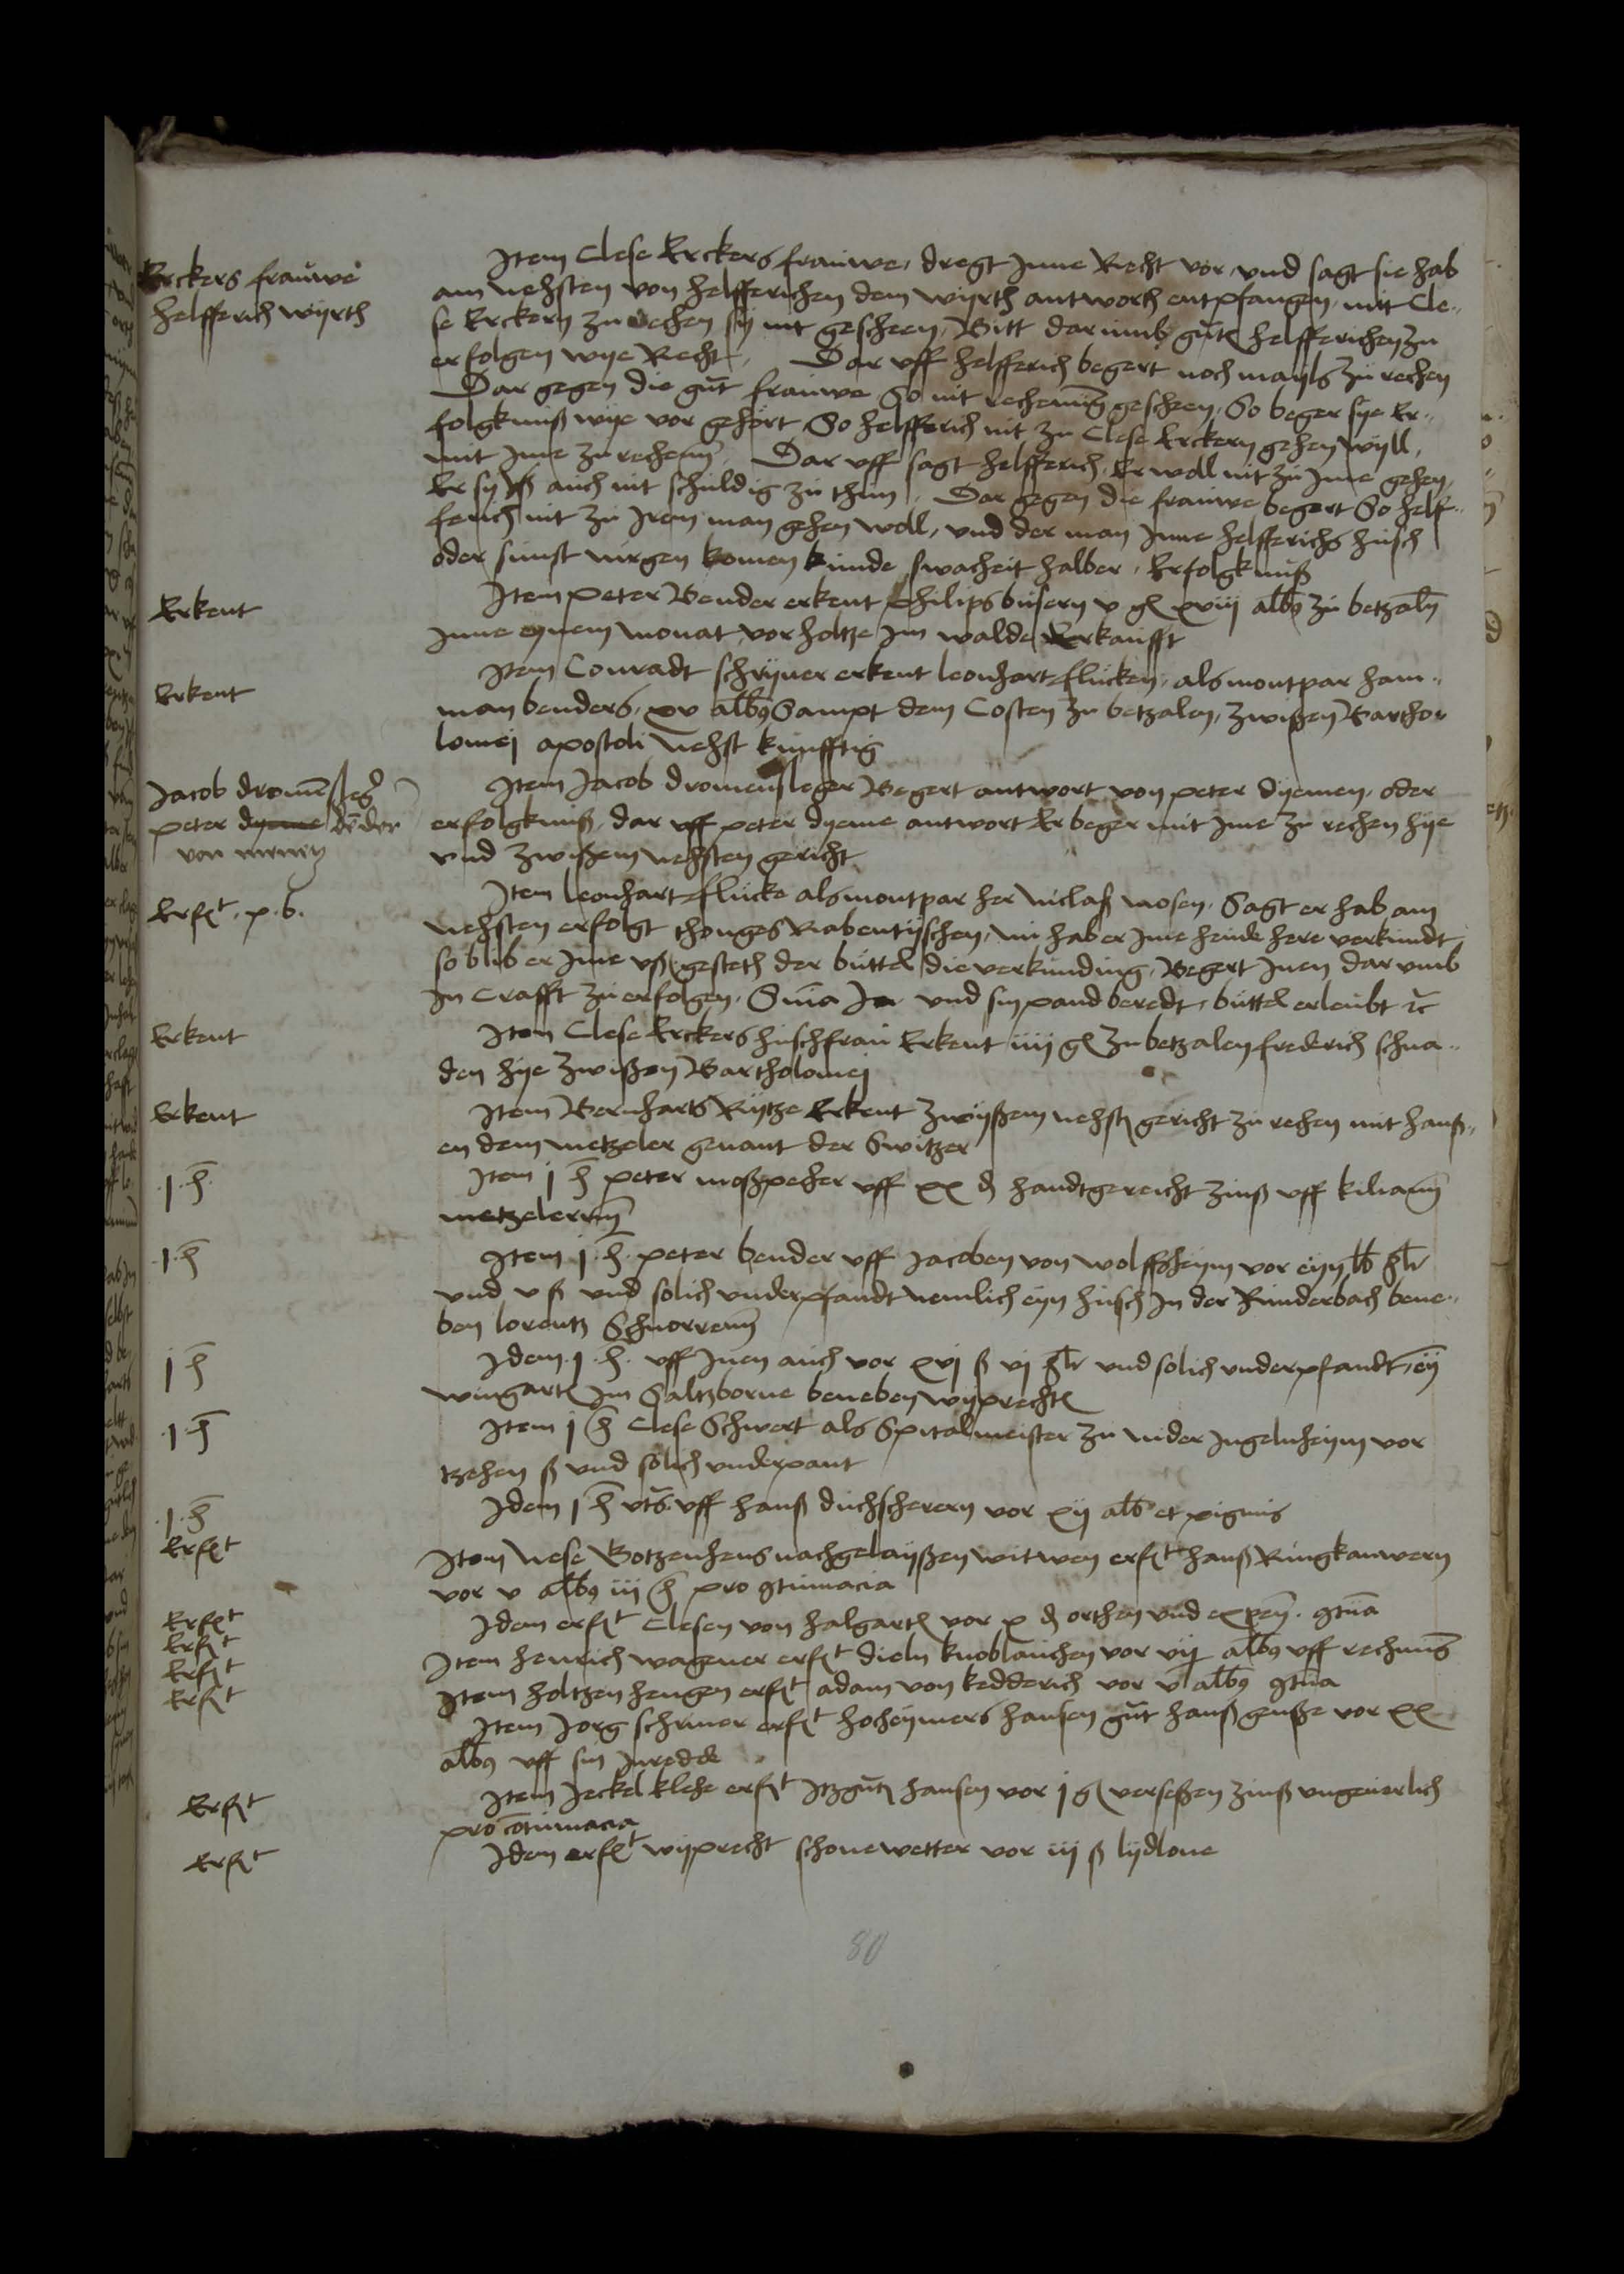 Erckers frauwe
Helfferich wyrth
Item Clese Erckers frauwe, dregt Inne Recht vor, und sagt sie hab
am nehsten von helfferichen dem wyrth antworth entpfangen, mit Cle-
se Erckern zu rechen sy nit gescheen, Bitt darumb gūtl helfferichen zu
erfolgen wye Recht, Dar uff helfferich begert noch mayls zu rechen
Dar gegen die gūt frauwe So nit rechenūg gescheen, So beger sye Er-
folgkniß wye vor gehort So helfferich nit zu Clese Erckern gehen wyll,
mit Ime zu rechenn, Dar uff sagt helfferich, Er woll nit zu Ime gehen,
Er sy eß auch nit schuldig zu thun, Dar gegen die frauwe begert So helf-
ferich nit zu Irem man gehen woll, und der man Inne helfferichs husch
oder sunst nirgen komen kunde swacheit halber, Erfolgkniß
Erkent
Item Peter Bender erkent Philips busern v gl xviij albꝯ zu betzaln
Inne eynem monat vor holtze Im walde Erkaufft
Erkent
Item Conradt schryner erkent leonhart flucken, als montpar ham-
man benders, xv albꝯ Sampt dem Costen zu betzalen, zwißen Bartho-
lomej apostoli nehst kunfftig
Jacob dromēsleḡ
peter dyeme bēder
von
Item Jacob dromensleger Begert antwort von peter dyemen, oder
erfolgkniß, dar uff peter dyeme antwort Er beger mit Ime zu rechen hye
und zwißem nehsten gericht
Erfʃt p. b.
Item leonhart flucke als montpar her niclaß mosen, Sagt er hab am
nehsten erfolgt thonges Rabentyschen, nu hab er Ime heude here verkundt
so blib er Ime uß gesteth der büttel die verkunding, Begert Inen dar umb
In Crafft zu erfolgen. Snīa Ja und sin pand beredt, büttel erleubt ꝛc
Erkent
Item Clese Erckers huschfrau Erkent iiij gl zu betzalen frederich schna-
den hye zwißen Bartholomej
Erkent
Item Bernharts Rytze Erkent zwyßem nehstē gericht zu rechen mit hanß-
en dem metzeler genant der Switzer
.j. h̄.
Item j h̄ peter moßpecher uff xx d̨ handtgereicht zinß uff kiliann
metzelernn
.j. h̄
Item j. h̄. peter bender uff Jacoben von wolffsheym vor eyn lb hlr
und v ß und solich underpfandt nemlich eyn husch In der Runderbach bene-
ben lorentz Schnorrenn
j h̄
Idem. j. h̄. uff Inen auch vor xvj ß vj hlr und solich underpfandt, eȳ
wingartē Im Saltzborne beneben wyprechtē
.j. h̄
Item j h̄ Clese Schwert als Spitalmeister zu nider Ingelnheym vor
tzehen ß und solich underpant
.j. h̄
Idem j h̄ utꝭ uff hanß duchscherern vor xij alb et pignus
Erfʃt
Item nese Botzenhens nachgelayßen witwen erfʃt hanß Rungkauwern
vor v albꝯ iij h̄ pro ꝯtumacia
Erfʃt
Idem erfʃt Clesen von halgartē vor x d̨ orthen und expen. ꝯtūa
Erfʃt
Item henrich wagener erfʃt dieln knoblauchen vor vij albꝯ uff rechnūg
Erfʃt
Item holtzen hengen erfʃt adam von kedderich vor v albꝯ ꝯtūa
Erfʃt
Item Jorg schriner erfʃt hocheymers hansen gūt hanß genße vor xx
albꝯ uff sin Inredde
Erfʃt
Item Jeckel klehe erfʃt Itzgūtz hansen vor j gl verseßen zinß ungeverlich
pro cōtumacia
Erfʃt
Idem erfʃt wyprecht schonewetter vor iij ß lydlone
80